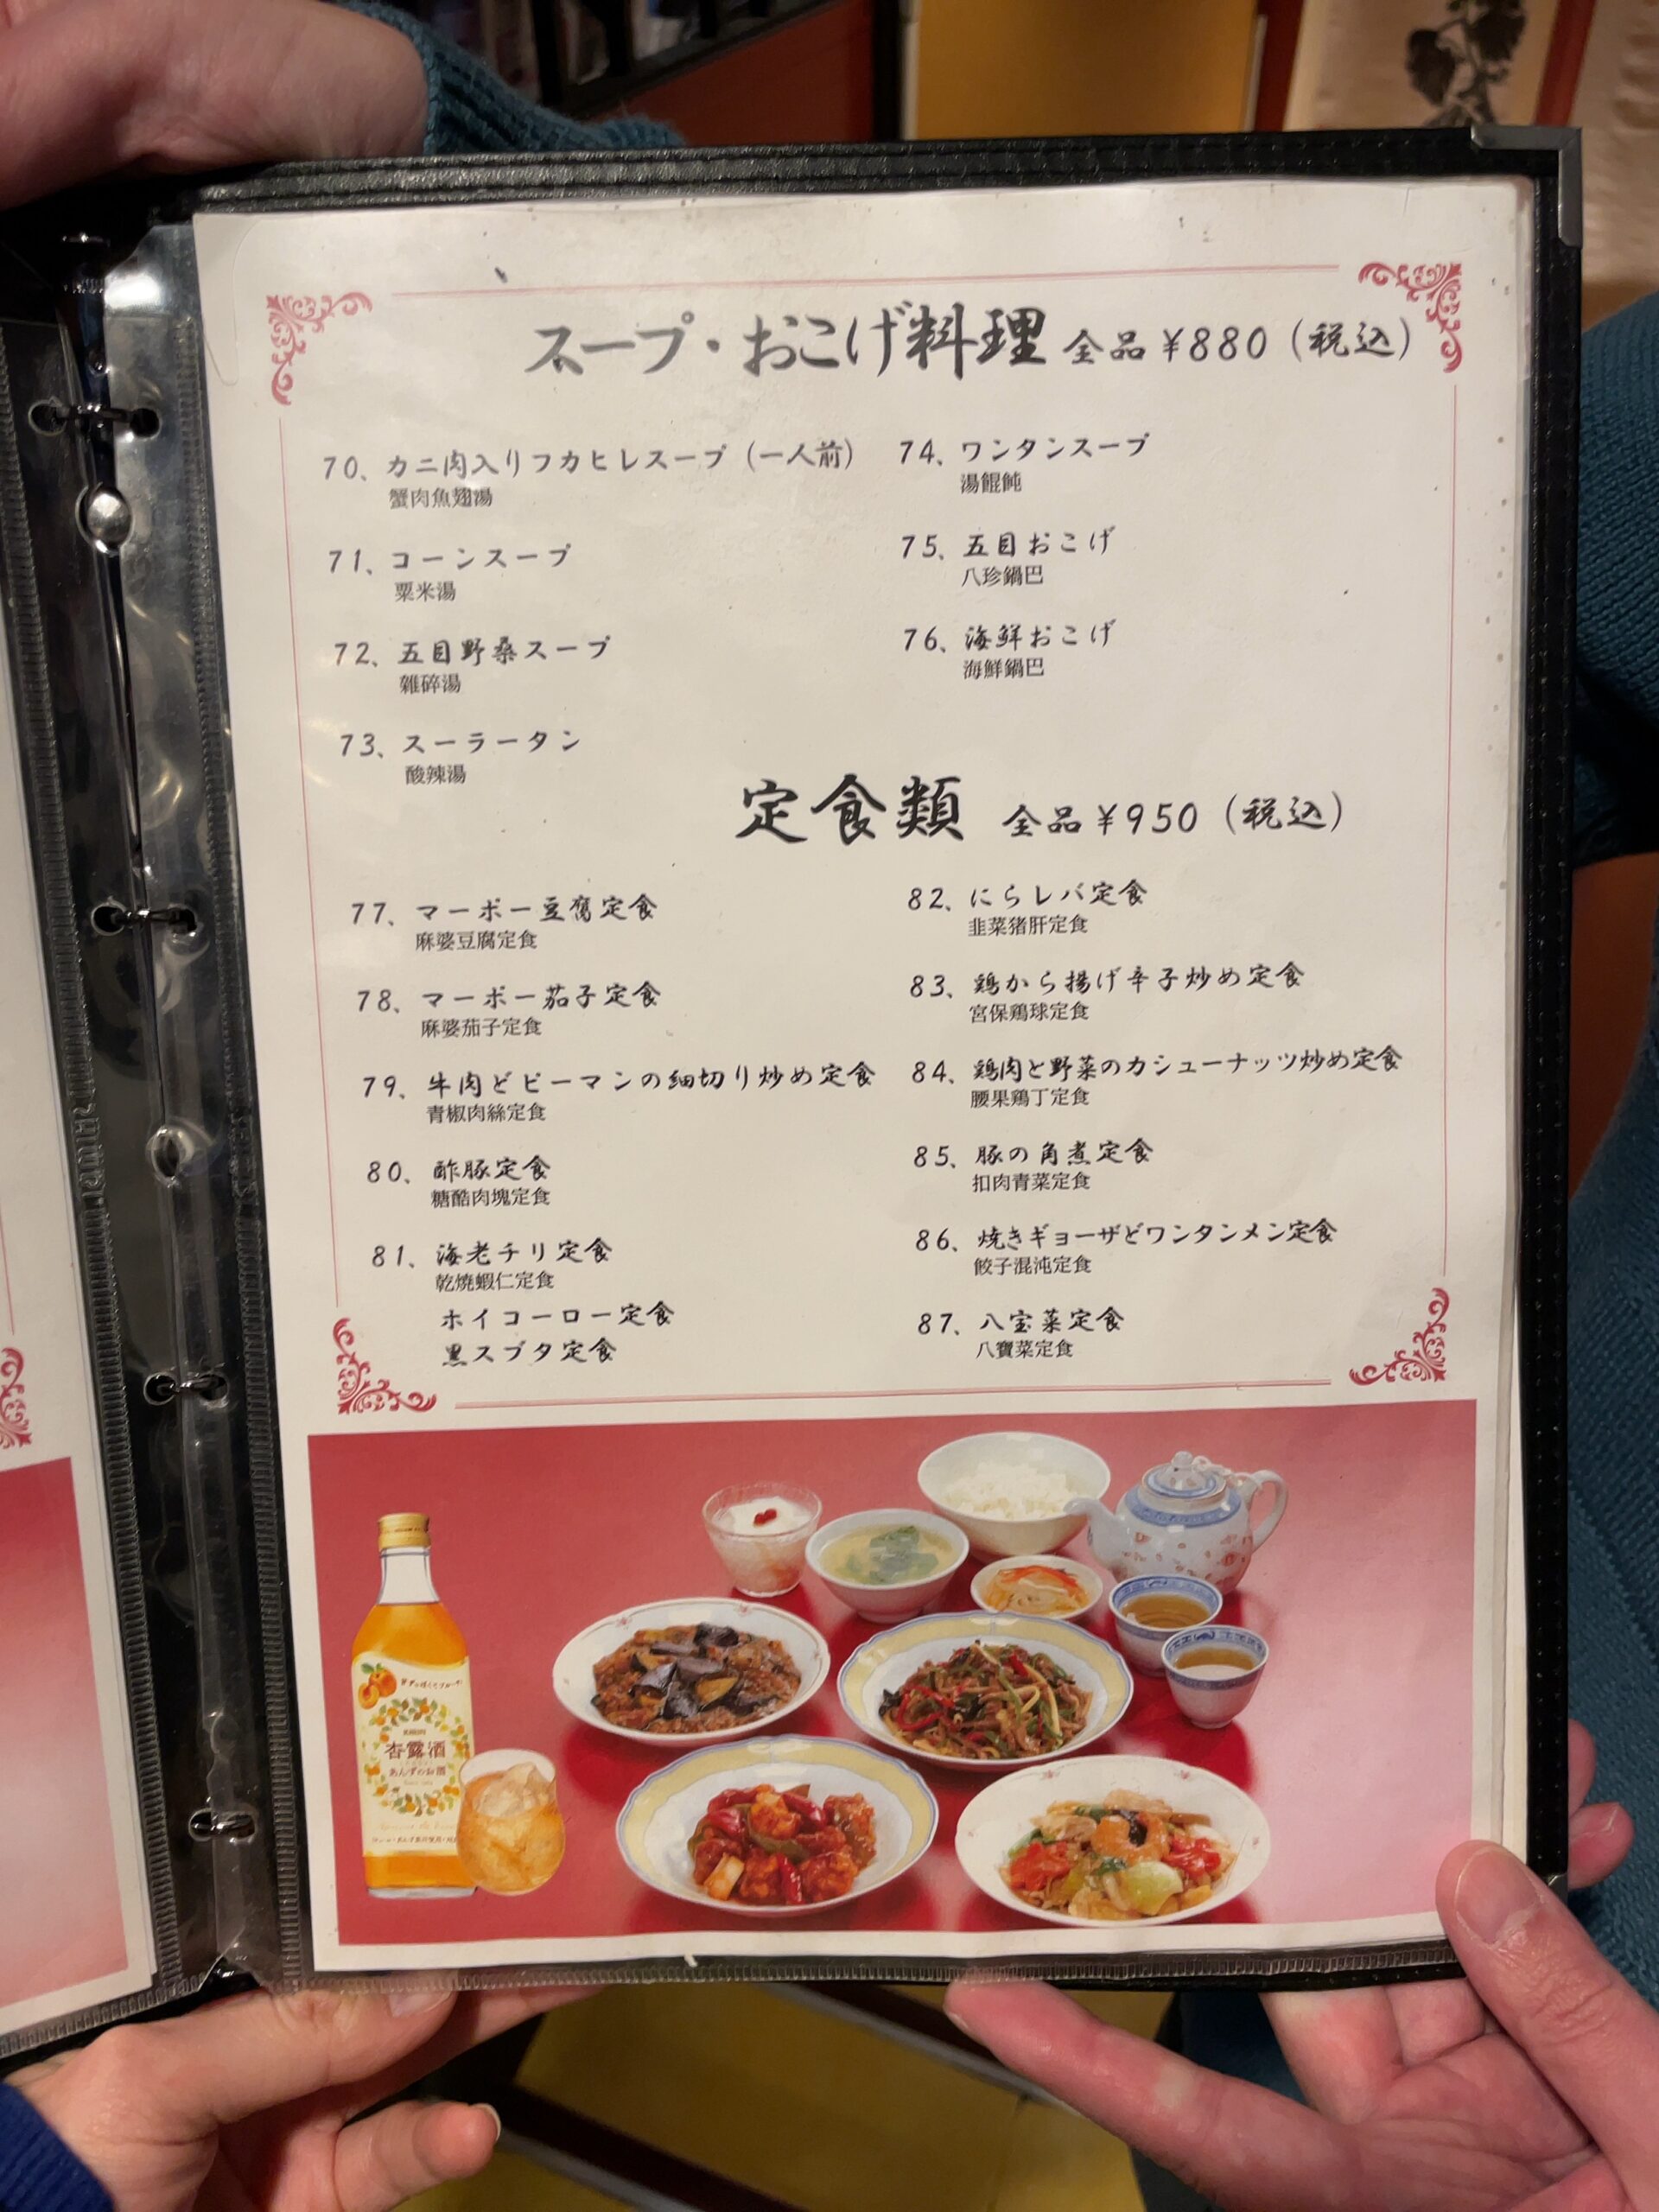 スープ・おこげ料理 全品¥880（税込）
70、カニ肉入りフカヒレスープ（一人前）
蟹肉魚翅湯
71、コーンスープ
粟米湯
72、五目野桑スープ
雑碎湯
73、スーラータン
酸辣湯
74、ワンタンスープ
湯餛飩
75、五目おこげ
八珍鍋巴
76、海鮮おこげ
海鮮鍋巴
定食類 全品¥950（税込）
77、マーボー豆腐定食
麻婆豆腐定食
78、マーボー茄子定食
麻婆茄子定食
79、牛肉とピーマンの細切り炒め定食
青椒肉絲定食
80、酢豚定食
糖酷肉塊定食
81、海老チリ定食
乾焼蝦仁定食
ホイコーロー定食
黒スブタ定食
82、にらレバ定食
韭菜猪肝定食
83、鶏から揚げ辛子炒め定食
宮保鶏球定食
84、鶏肉と野菜のカシューナッツ炒め定食
腰果鶏丁定食
85、豚の角煮定食
扣肉青菜定食
86、焼きギョーザとワンタンメン定食
餃子混沌定食
87、八宝菜定食
八寶菜定食
杏露酒
あんずのお酒